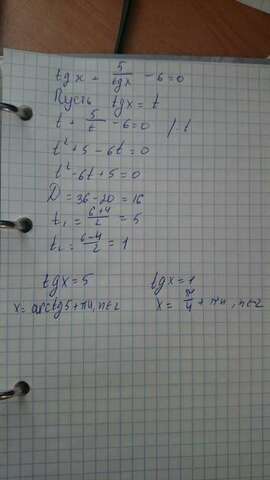 tg x + 5/tg x - 6 = 0
Пусть tg x = t
t + 5/t - 6 = 0 / · t
t² + 5 - 6t = 0
t² - 6t + 5 = 0
D = 36 - 20 = 16
t₁ = (6+4)/2 = 5
t₂ = (6-4)/2 = 1
tg x = 5
x = arctg 5 + πn, n∈z
tg x = 1
x = π/4 + πn, n∈z